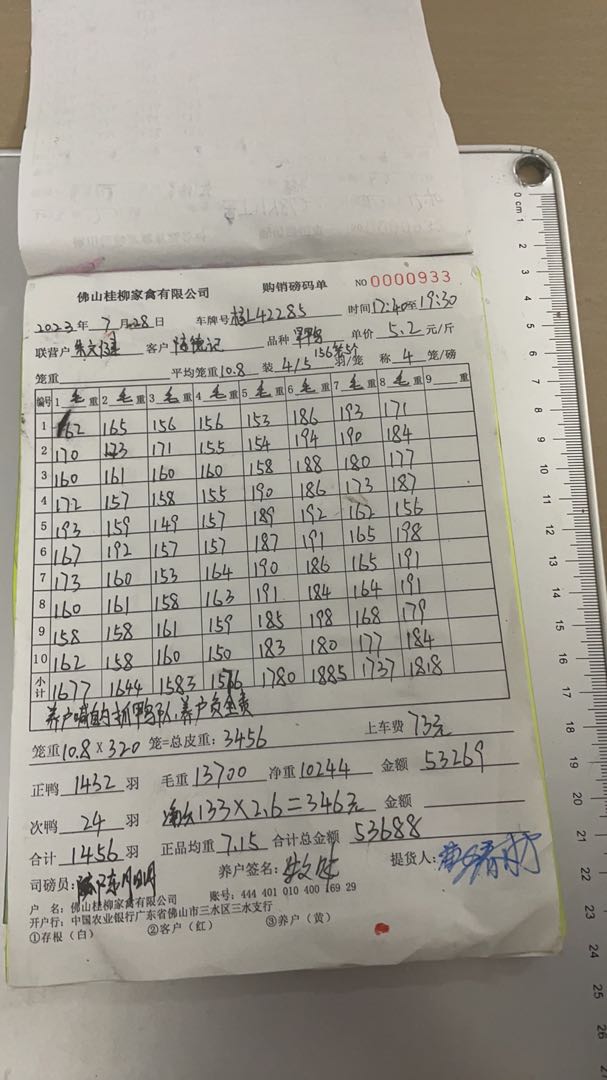 佛山桂柳家禽有限公司 购销磅码单 NO 0000933
2023年 7月28日 车牌号 L42285 时间17:40至19:30
联营户 客户 陈德记 品种 单价 5.2 元/斤
笼重 平均笼重10.8 装 4/5 羽/笼 称 4 笼/磅
编号 1 毛重 2 毛重 3 毛重 4 毛重 5 毛重 6 毛重 7 毛重 8 毛重 9 重
1 162 165 156 156 153 186 193 171
2 170 173 171 155 154 194 190 184
3 160 161 160 160 158 188 180 177
4 172 157 158 155 190 186 173 187
5 193 159 149 157 189 192 162 156
6 167 192 157 157 187 191 165 198
7 173 160 153 164 190 186 165 191
8 160 161 158 163 191 184 164 191
9 158 158 161 159 185 198 168 179
10 162 158 160 150 183 180 177 184
小计 1677 1644 1583 1576 1780 1885 1737 1818
养户喊的抓鸭队,养户负全责
笼重10.8×320 笼=总皮重:3456 上车费 73元
正鸭 1432 羽 毛重 13700 净重 10244 金额 53269
次鸭 24 羽 133×2.6=346元 金额
合计 1456 羽 正品均重 7.15 合计总金额 53688
司磅员: 养户签名: 提货人:
户 名:佛山桂柳家禽有限公司 账号:444 401 010 400 169 29
开户行:中国农业银行广东省佛山市三水区三水支行
①存根(白) ②客户(红) ③养户(黄)
0 cm 1
2
3
4
5
6
7
8
9
10
11
12
13
14
15
16
17
18
19
20
21
22
23
24
25
26
27